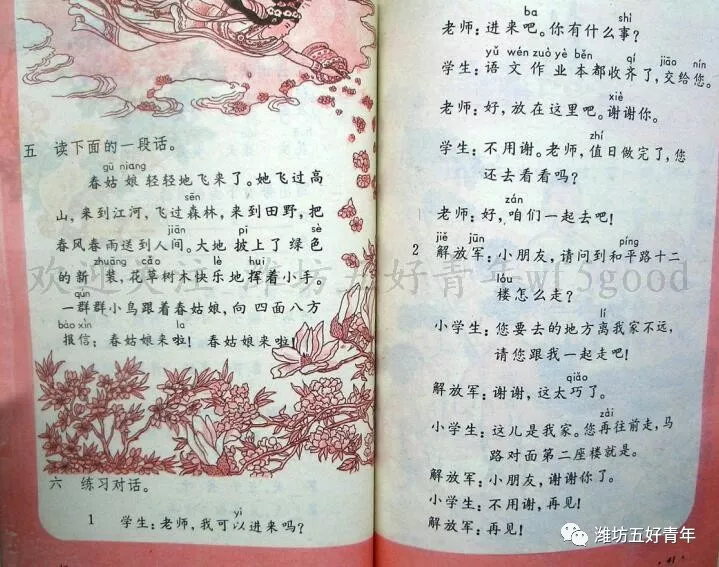 五 读下面的一段话。
gū niang
春姑娘轻轻地飞来了。她飞过高
sēn
山，来到江河，飞过森林，来到田野，把
jiān pī sè
春风春雨送到人间。大地披上了绿色
zhuāng cǎo lè huī
的新装，花草树木快乐地挥着小手。
qún
一群群小鸟跟着春姑娘，向四面八方
bào xìn la
报信：春姑娘来啦！春姑娘来啦！
六 练习对话。
yǐ
1 学生：老师，我可以进来吗？
ba shì
老师：进来吧。你有什么事？
yǔ wén zuò yè běn qí jiāo nín
学生：语文作业本都收齐了，交给您。
xiè
老师：好，放在这里吧。谢谢你。
zhí
学生：不用谢。老师，值日做完了，您
还去看看吗？
zán
老师：好，咱们一起去吧！
jiě jūn píng
2 解放军：小朋友，请问到和平路十二
lóu
楼怎么走？
lí
小学生：您要去的地方离我家不远，
请您跟我一起走吧！
qiǎo
解放军：谢谢，这太巧了。
zài
小学生：这儿是我家。您再往前走，马
路对面第二座楼就是。
解放军：小朋友，谢谢你了。
小学生：不用谢，再见！
解放军：再见！
41
欢迎关注 潍坊五好青年 wf5good
潍坊五好青年